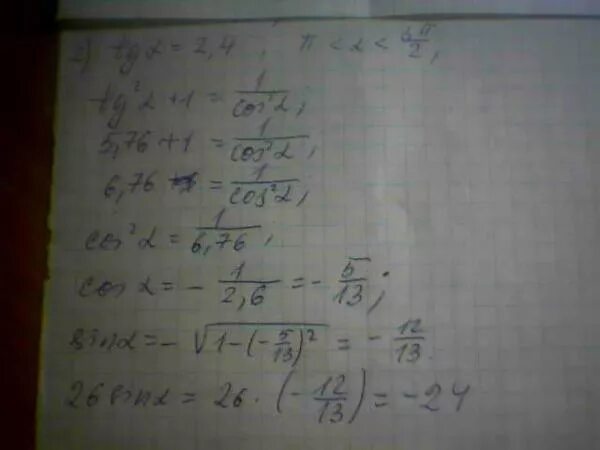 2) tg α = 2,4 , π < α < 3π/2 ;
tg²α + 1 = 1/cos²α ;
5,76 + 1 = 1/cos²α ;
6,76 = 1/cos²α ;
cos²α = 1/6,76 ;
cos α = - 1/2,6 = - 5/13 ;
sin α = - √(1-(-5/13)²) = - 12/13
26 sin α = 26 · (- 12/13) = -24